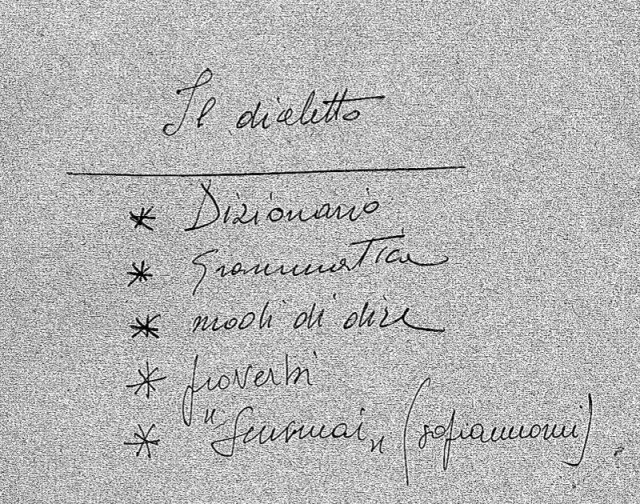 Il dialetto
* Dizionario
* Grammatica
* modi di dire
* proverbi
* (soprannomi)